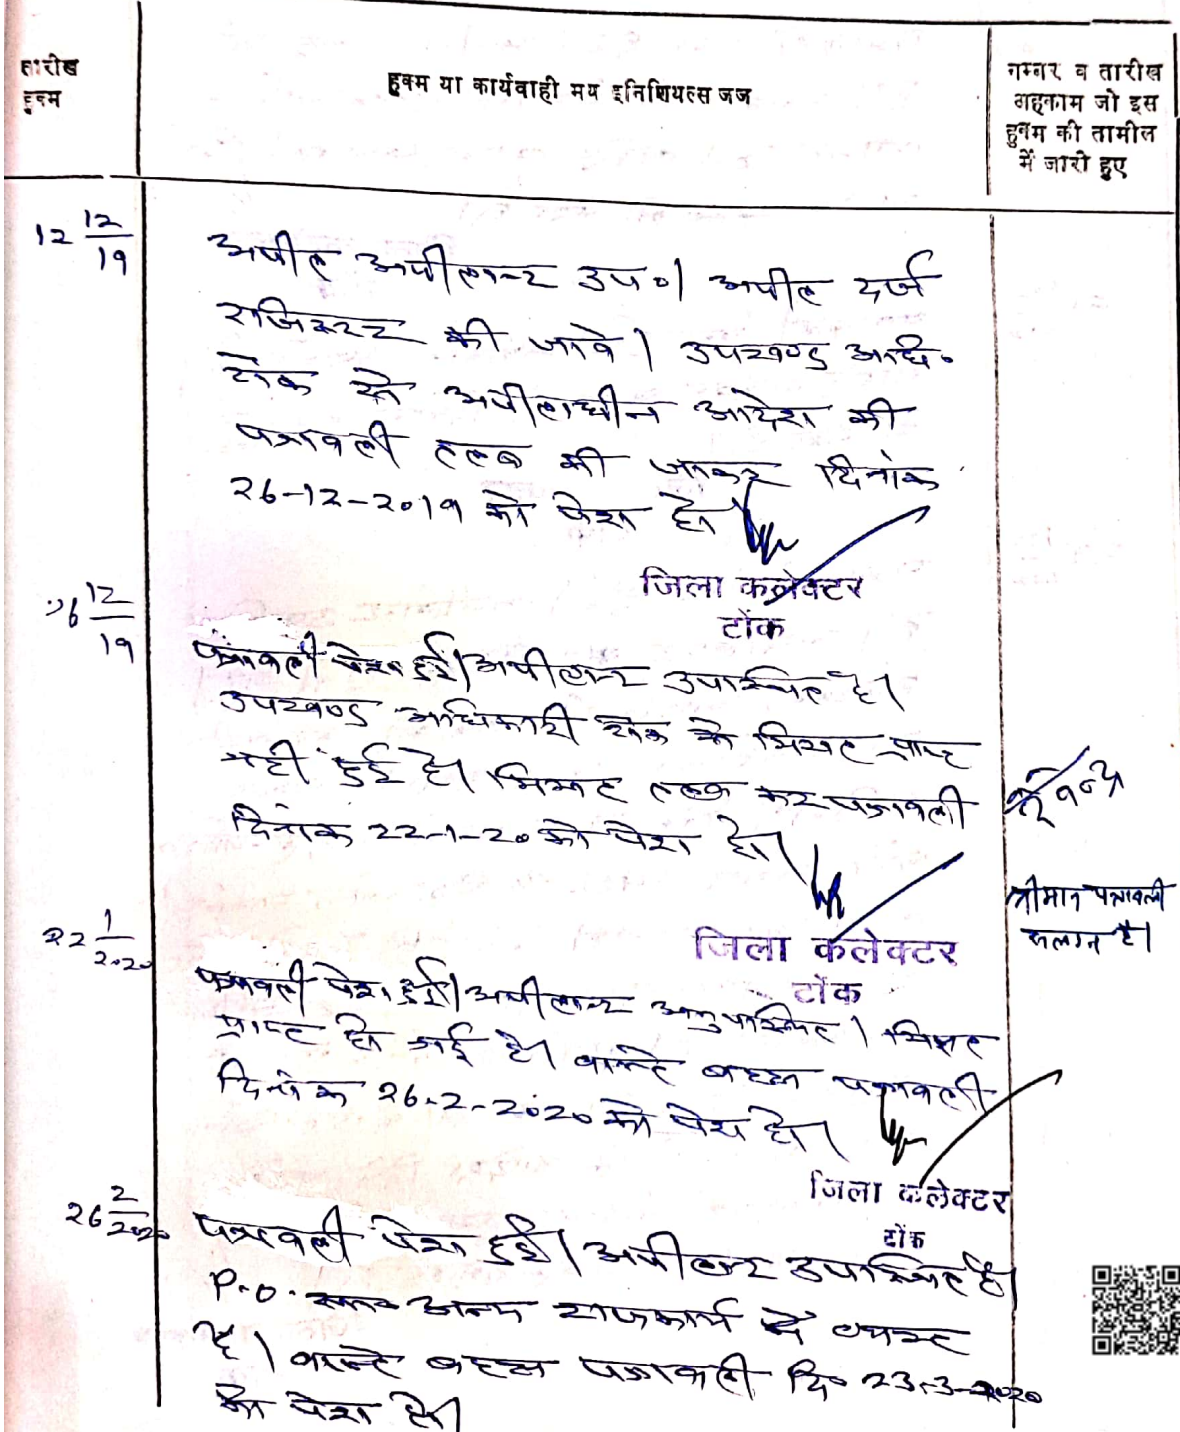 तारीख
हुक्म
हुक्म या कार्यवाही मय इनिशियल्स जज
नम्बर व तारीख
अहकाम जो इस
हुक्म की तामील
में जारी हुए
12 12/19
अपील अपीलान्ट उप०। अपील दर्ज
रजिस्टर की जावे। उपखण्ड अधि०
टोंक से अपीलाधीन आदेश की
पत्रावली तलब की जाकर दिनांक
26-12-2019 को पेश हो।
जिला कलेक्टर
टोंक
26 12/19
पत्रावली पेश हुई। अपीलान्ट उपस्थित है।
उपखण्ड अधिकारी टोंक से मिसल प्राप्त
नहीं हुई है। मिसल तलब कर पत्रावली
दिनांक 22-1-20 को पेश हो।
जिला कलेक्टर
टोंक
श्रीमान पत्रावली
सलग्न है।
22 1/2020
पत्रावली पेश हुई। अपीलान्ट अनुपस्थित। मिसल
प्राप्त हो गई है। वास्ते बहस पत्रावली
दिनांक 26-2-2020 को पेश हो।
जिला कलेक्टर
टोंक
26 2/2020
पत्रावली पेश हुई। अपीलान्ट उपस्थित है।
P.O. अन्य राजकार्य में व्यस्त
है। वास्ते बहस पत्रावली दि० 23-3-2020
को पेश हो।